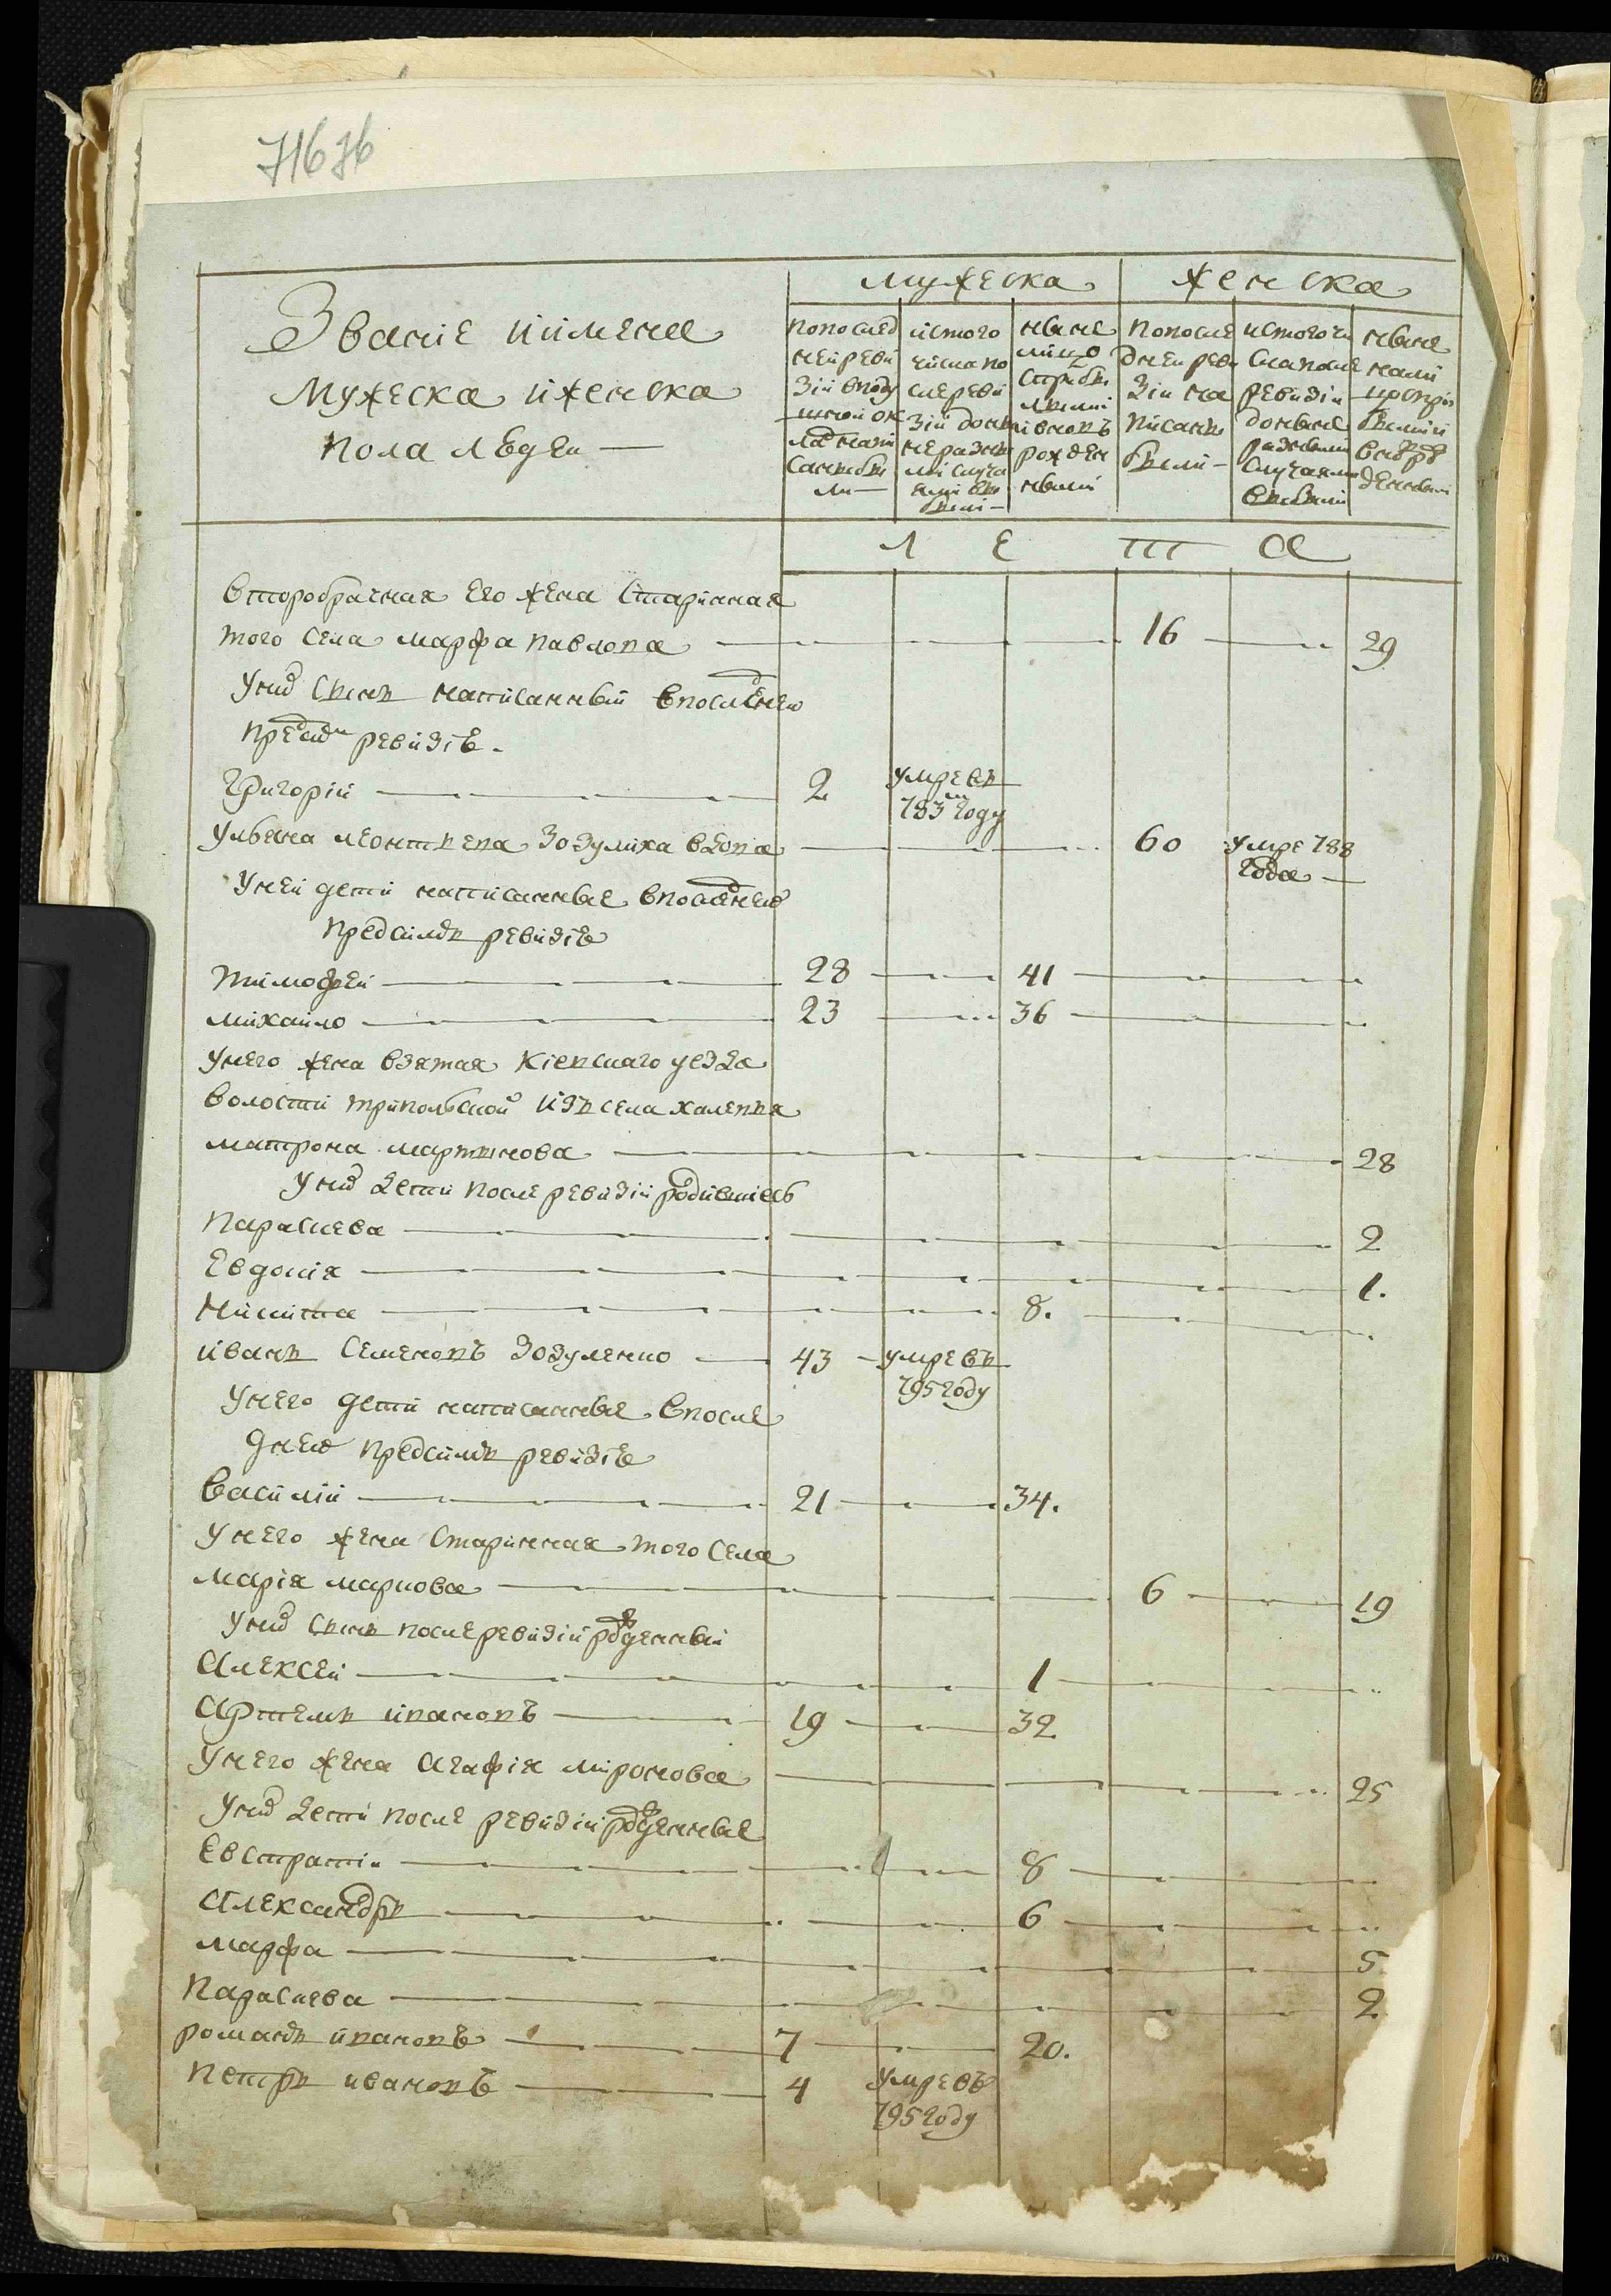 71 636
Званіе иимена
Мужеска иженска
пола людеи —
мужеска женска
попослед
неиреви
зіи вподу
шном ок
ладе напи
саны бы
ли —
истого
числа по
слереви
зіи доны
не разны
ми случа
ями вы
были —
ныне
лицо
сприбы
лыми
ивновъ
рожден
ными
попосле
днеи реви
зіи на
писаны
были —
истого чи
сла после
ревизіи
доныне
разными
случаями
выбыли
ныне
нали
цо спри
былыми
л е т а
второбрачная его жена старинная
того села марфа павлова — 16 — 29
уних сынъ написанный впоследнеи
пред сим ревизіе.
Григоріи — 2 умре въ
783м году
ульяна леонтьева Зозулиха вдова — 60 умре 788
года —
унеи дети написанные впоследнеи
пред симъ ревизіе
тимофеи — 28 — 41 —
михаило — 23 — 36 —
унего жена взятая кіевского уезда
волости трипольскои изъ села халепья
матрона мартынова — 28
уних дети после ревизіи родившіесь
парасцева — 2
Евдокія — 1.
Никита — 8.
иванъ семеновъ Зозуленко — 43 — умре въ
795 году
унего дети написанные впосле
днею предсимъ ревизіе
василіи — 21 — 34.
унего жена старинная того села
марія маркова — 6 — 19
уних сынъ послеревизіи рожденныи
алексеи — 1 —
артемъ ивановъ — 19 — 32
унего жена агафія миронова — 25
уних дети после ревизіи рожденные
Евстратіи — 8 —
александръ — 6 —
марфа — 5
парасцева — 2
романъ ивановъ — 7 — 20.
петръ ивановъ — 4 умре въ
795 году